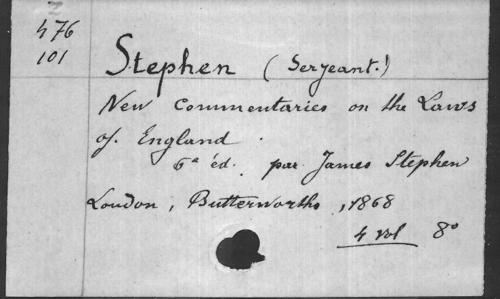 476
101
Stephen (Serjeant.)
New Commentaries on the Laws
of England.
6ª éd. par James Stephen
London, Butterworths, 1868
4 vol 8º